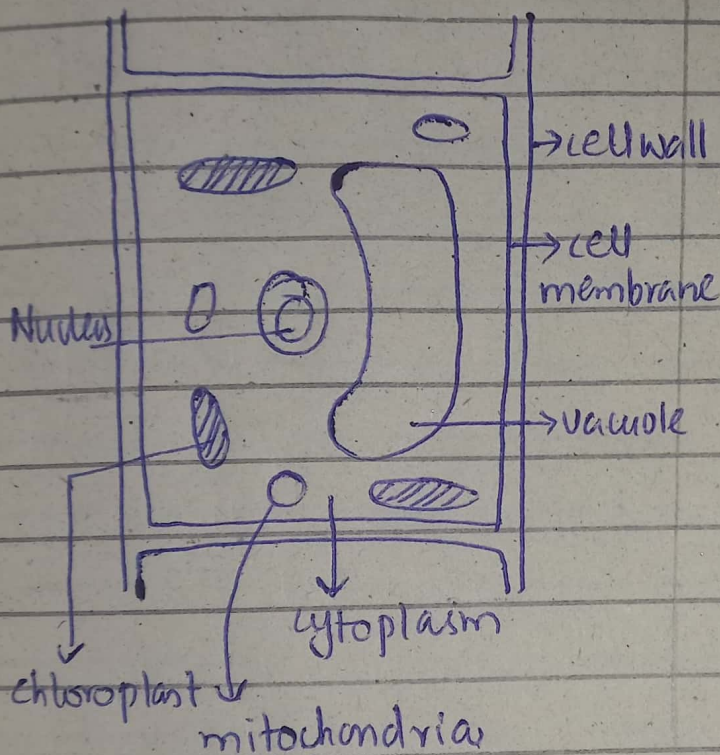 cell wall
cell
membrane
Nucleus
vacuole
cytoplasm
chloroplast
mitochondria